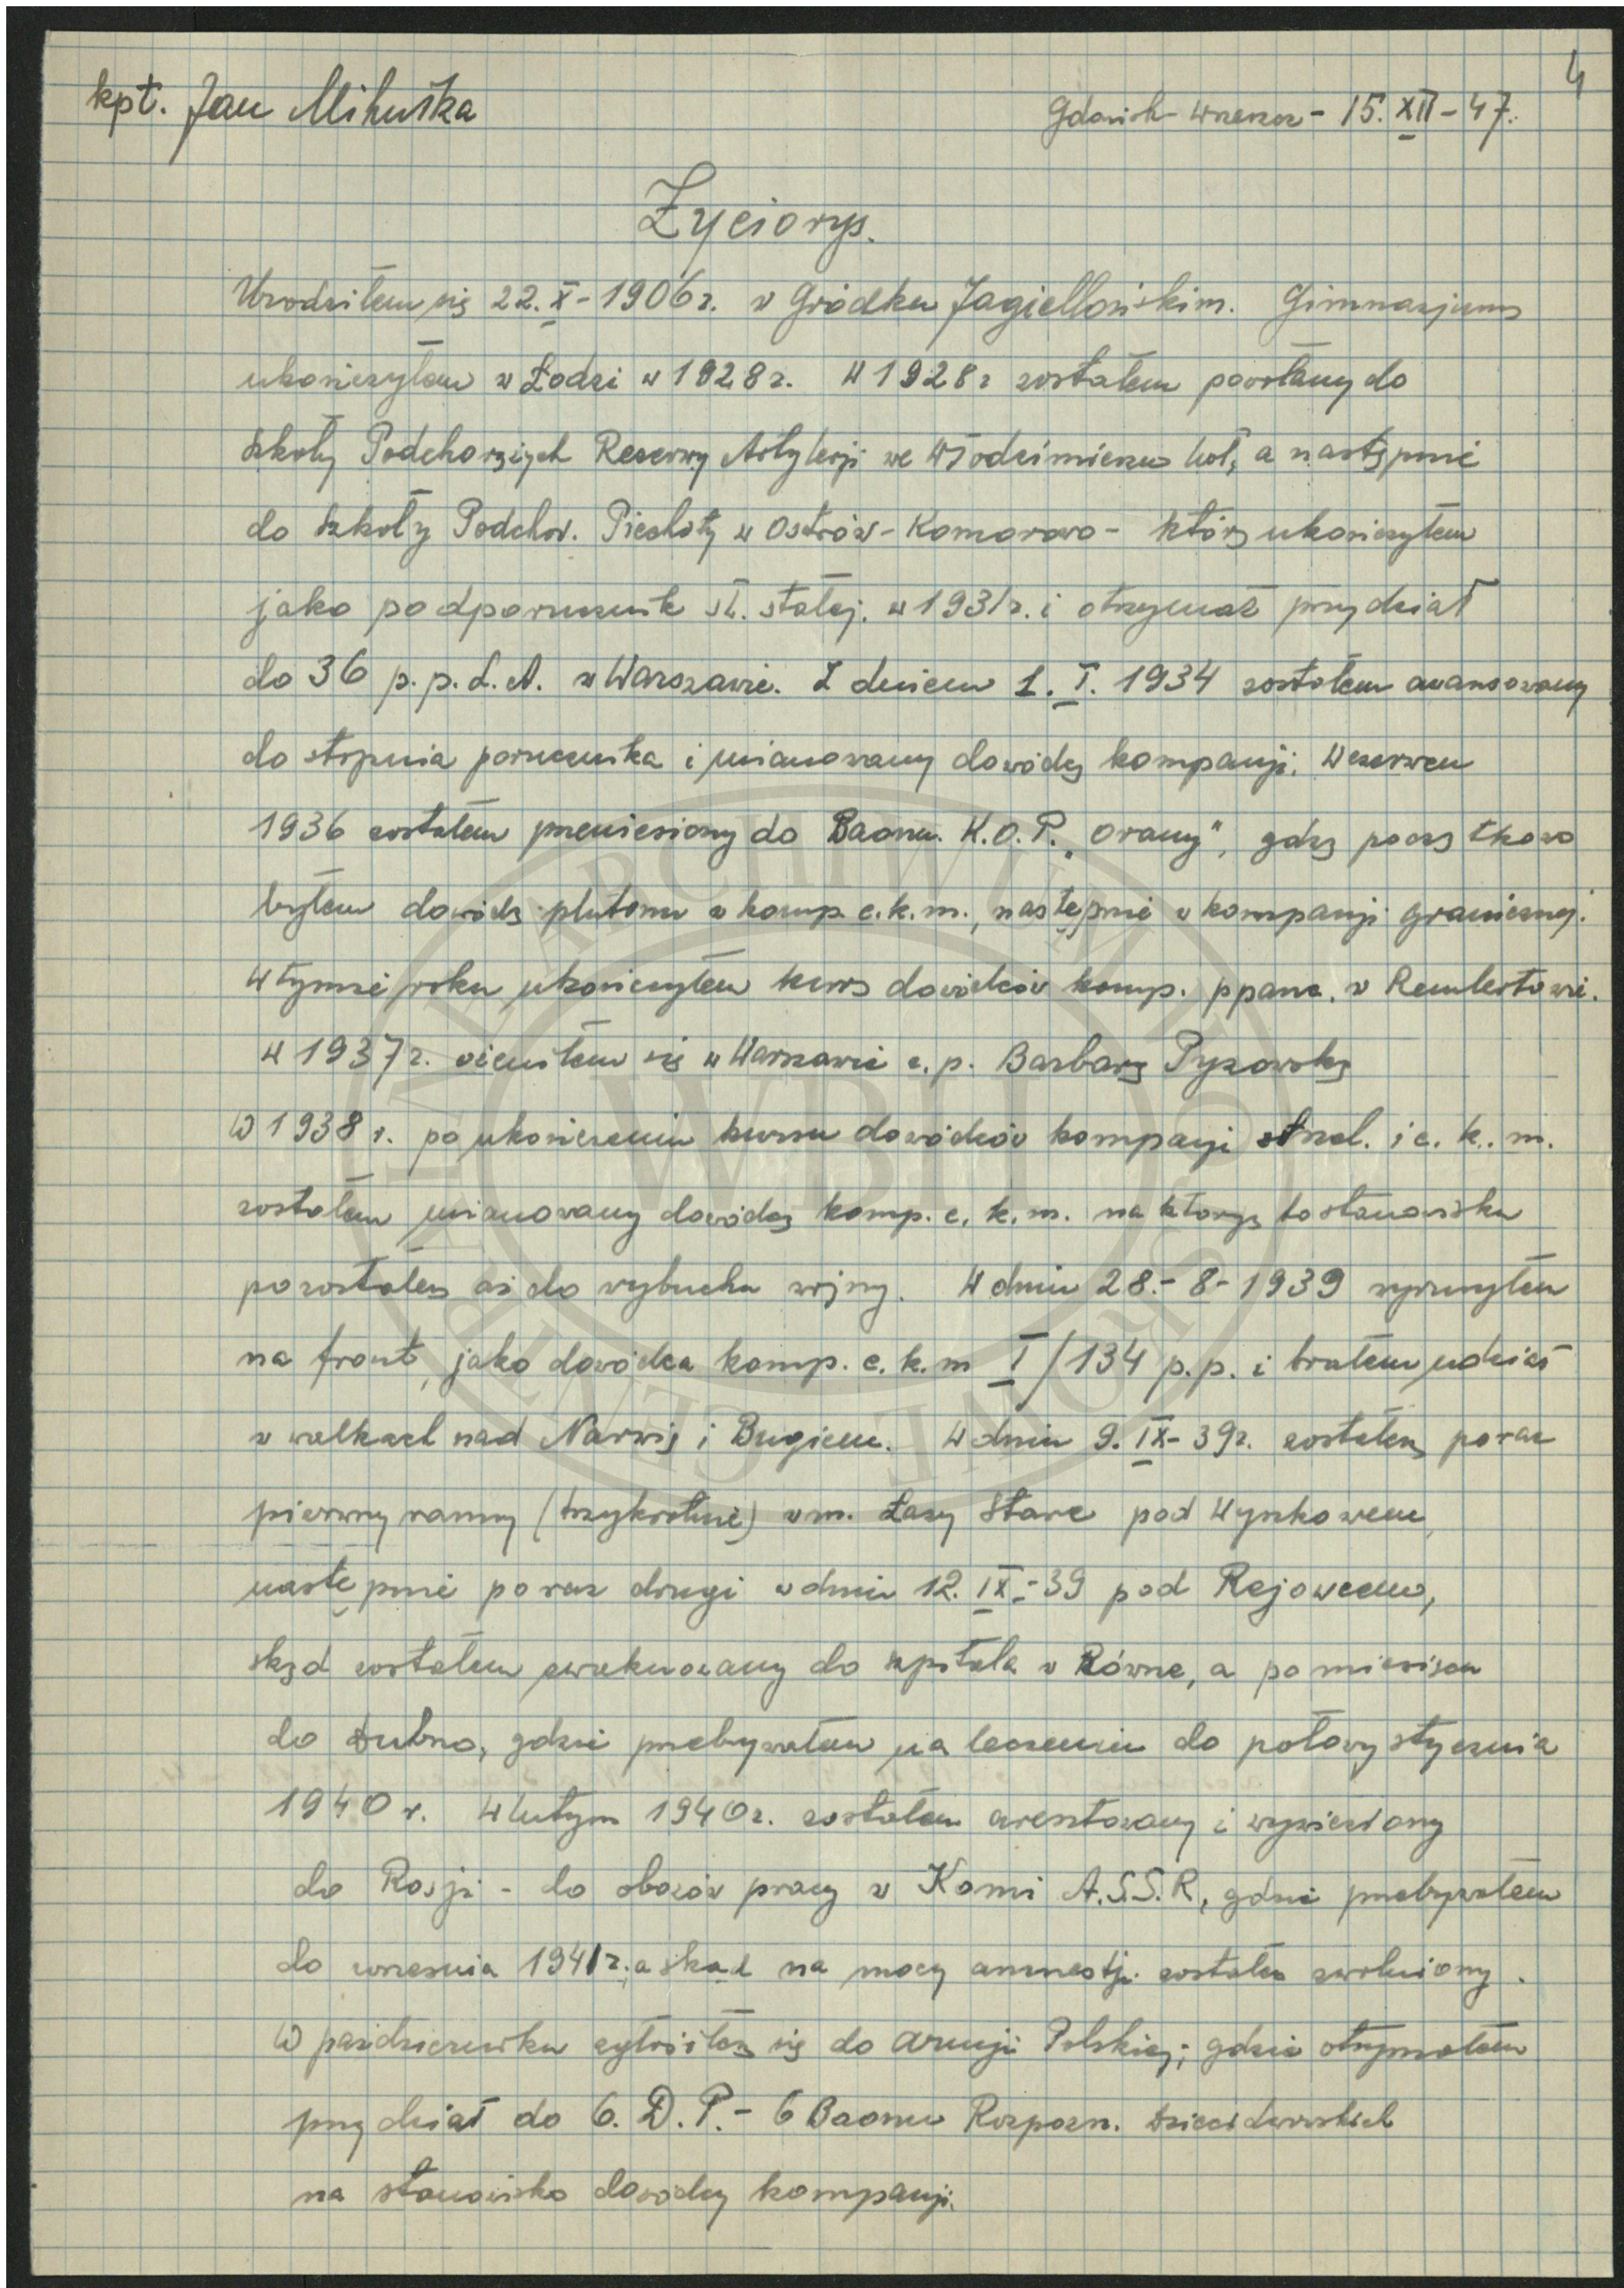 4
kpt. Jan Mikuśka Gdańsk-Wrzeszcz - 15. XII - 47.
Życiorys.
Urodziłem się 22. X - 1906 r. w Gródku Jagiellońskim. Gimnazjum
ukończyłem w Łodzi w 1928 r. W 1928 r zostałem powołany do
Szkoły Podchorążych Rezerwy Artylerji we Włodzimierzu Woł, a następnie
do Szkoły Podchor. Piechoty w Ostrów - Komorowo - którą ukończyłem
jako podporucznik sł. stałej. w 1931 r. i otrzymał przydział
do 36 p. p. L. A. w Warszawie. Z dniem 1. I. 1934 zostałem awansowany
do stopnia porucznika i mianowany dowódcą kompanji. W czerwcu
1936 zostałem przeniesiony do Baonu. K.O.P. "Orany", gdzą początkowo
byłem dowódcą plutonu w komp. c.k.m., następnie w kompanji granicznej.
W tymże roku ukończyłem kurs dowódców komp. ppanc. w Rembertowie.
W 1937 r. ożeniłem się w Warszawie z. p. Barbarą Pyzowską
W 1938 r. po ukończeniu kursu dowódców kompanji strzel. i c. k. m.
zostałem mianowany dowódcą komp. c. k. m. na którym to stanowisku
pozostałem aż do wybuchu wojny. W dniu 28.- 8 - 1939 wyruszyłem
na front, jako dowódca komp. c. k. m I/134 p. p. i brałem udział
w walkach nad Narwią i Bugiem. W dniu 9. IX - 39 r. zostałem poraz
pierwszy ranny (trzykrotnie) w m. Łazy Stare pod Wyszkowem,
następnie poraz drugi w dniu 12. IX.- 39 pod Rejowcem,
skąd zostałem ewakuowany do szpitala w Równe, a po miesiącu
do Dubno, gdzie przebywałem na leczeniu do połowy stycznia
1940 r. W lutym 1940 r. zostałem aresztowany i wywieziony
do Rosji - do obozów pracy w Komi A.S.S.R, gdzie przebywałem
do września 1941 r. a skąd na mocy amnestji zostałem zwolniony.
W październiku zgłosiłem się do Armji Polskiej; gdzie otrzymałem
przydział do 6. D. P. - 6 Baonu Rozpozn. Dzieci Lwowskich
na stanowisko dowódcy kompanji.